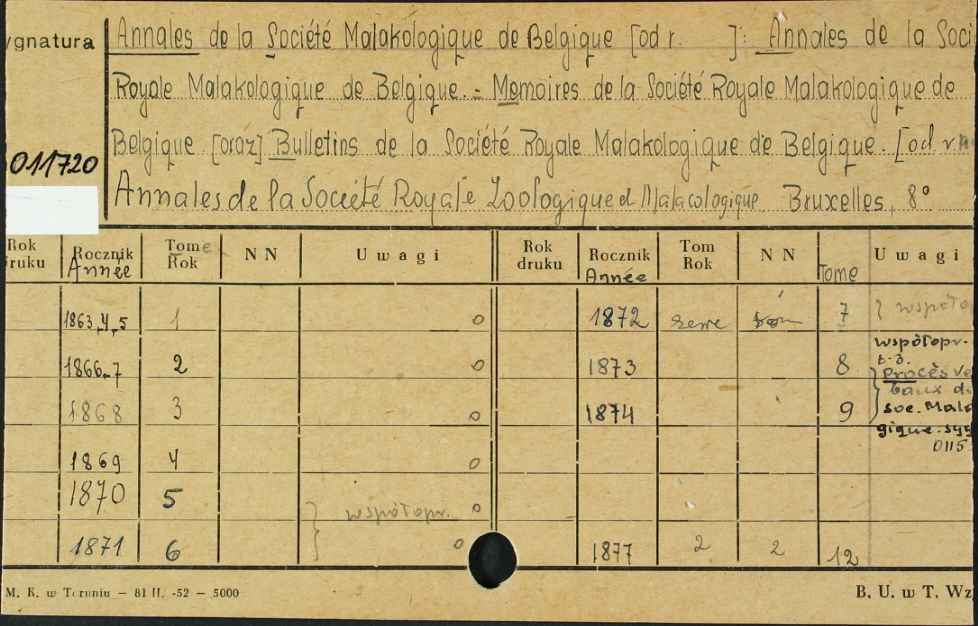 ygnatura
Annales de la Société Malakologique de Belgique [od r. ]: Annales de la Soci
Royale Malakologique de Belgique. - Memoires de la Société Royale Malakologique de
011720
Belgique [oraz] Bulletins de la Société Royale Malakologique de Belgique. [od. r.
Annales de la Société Royale Zoologique et Malacologique Bruxelles, 8°
Rok druku Rocznik Année Tome Rok NN Uwagi Rok druku Rocznik Année Tom Rok NN Tome Uwagi
1863,4,5 1 0 1872 7 } współo
1866-7 2 0 1873 8 współopr.
Procès Ve
baux d
1868 3 0 1874 9 soc. Mala
gique. syg
1869 4 0 0115
1870 5 współopr. 0
1871 6 0 1877 2 2 12
M. K. w Toruniu — 81 II. -52 — 5000 B. U. w T. Wz